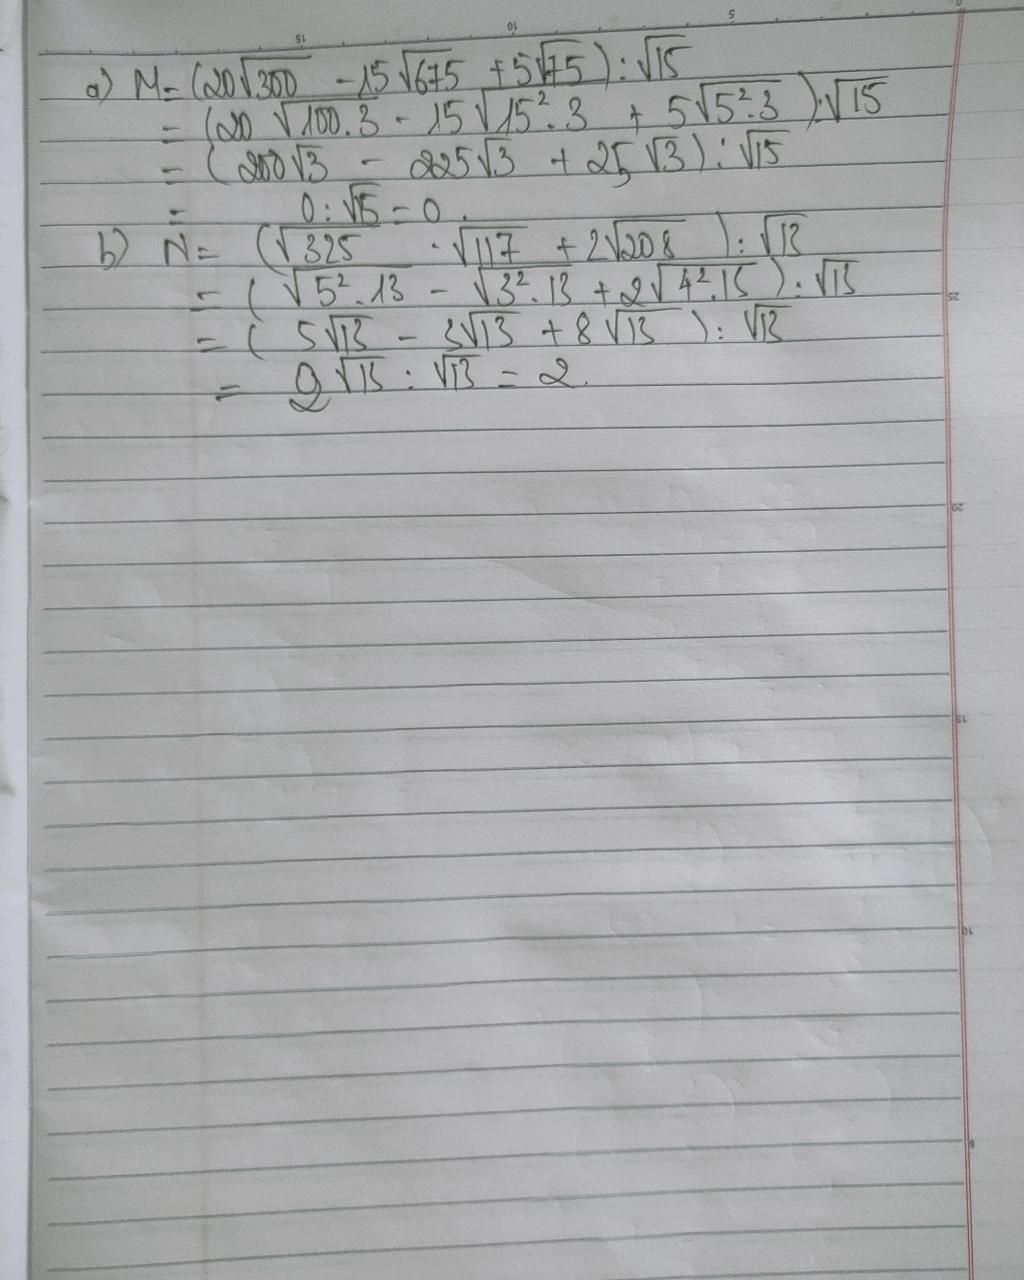 a) M = (20√300 - 15√675 + 5√75) : √15
= (20 √100.3 - 15√15².3 + 5√5².3) : √15
= (200√3 - 225√3 + 25√3) : √15
= 0 : √15 = 0.
b) N = (√325 - √117 + 2√208) : √13
= (√5².13 - √3².13 + 2√4².13) : √13
= (5√13 - 3√13 + 8√13) : √13
= 2√13 : √13 = 2.